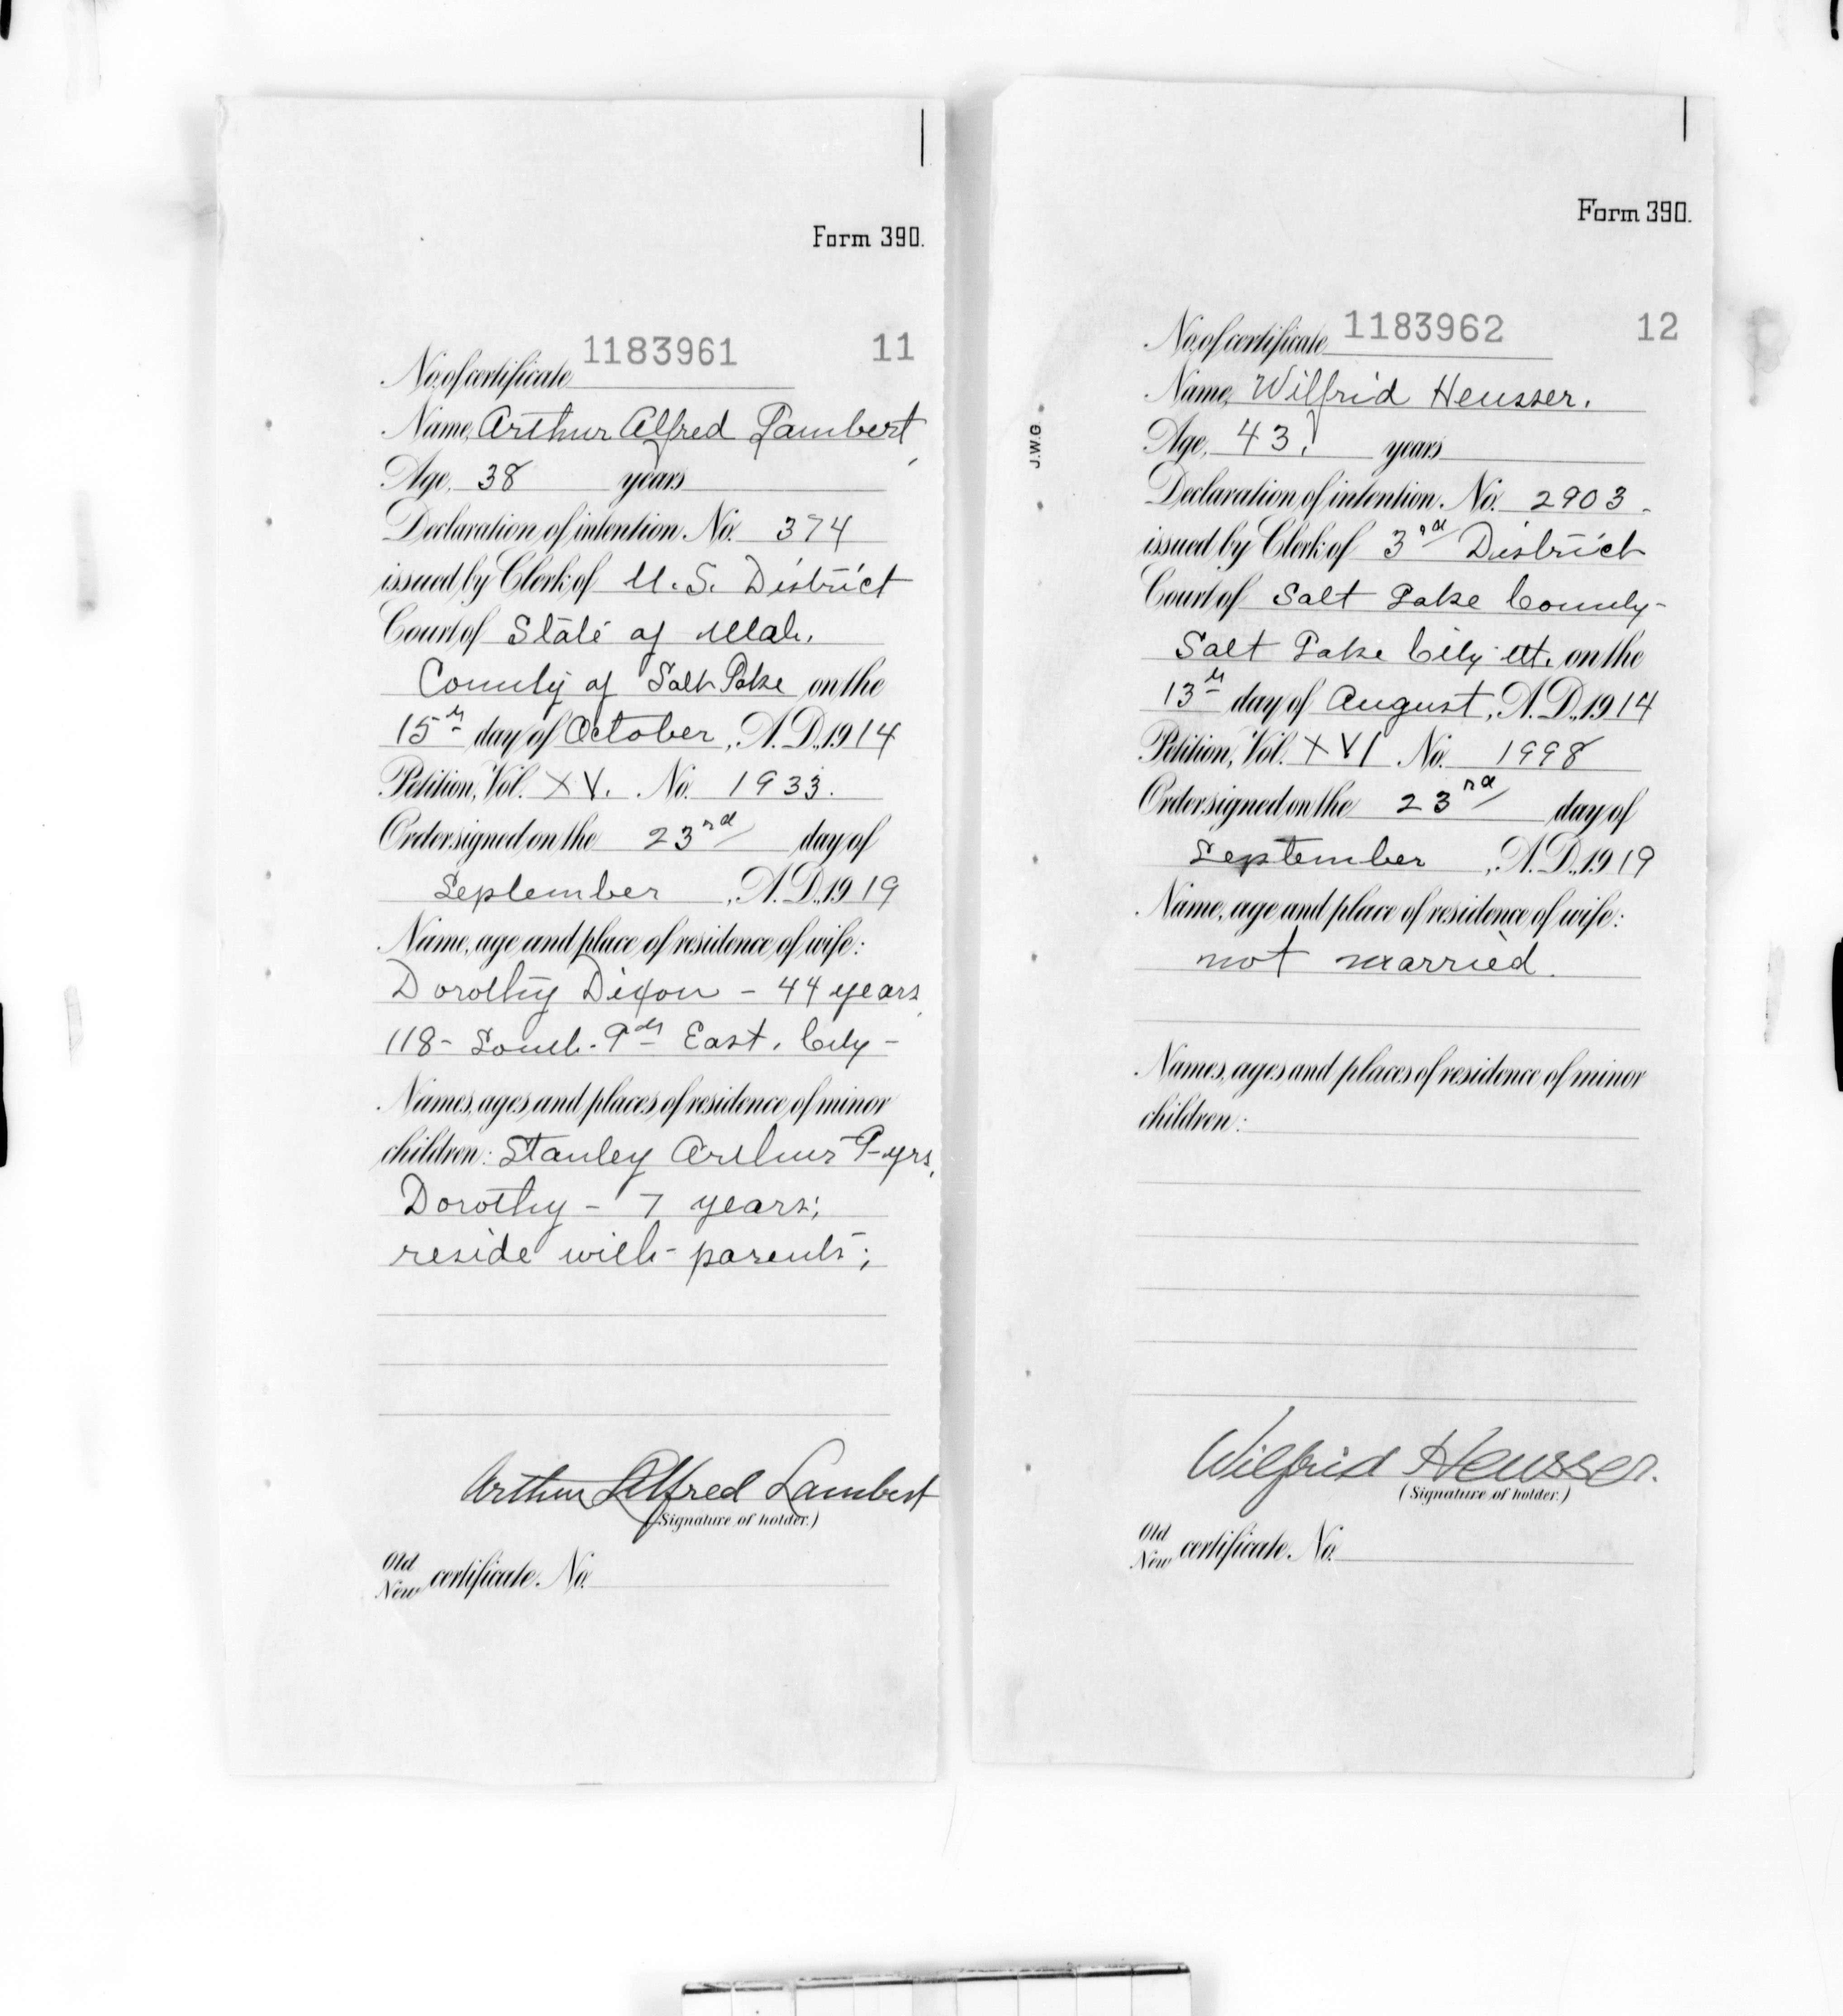 Form 390.
No. of certificate 1183961 11
Name, Arthur Alfred Lambert,
Age, 38 years
Declaration of intention, No. 374
issued by Clerk of U. S. District
Court of State of Utah,
County of Salt Lake on the
15th day of October, A. D., 1914
Petition, Vol. XV. No. 1933.
Order signed on the 23rd day of
September, A. D., 1919
Name, age and place of residence of wife:
Dorothy Dixon - 44 years,
118 - South - 9th East, City -
Names, ages and places of residence of minor
children: Stanley Arthur - 9 - yrs,
Dorothy - 7 years;
reside with - parents;
Arthur Alfred Lambert
(Signature of holder.)
Old
New certificate. No.
Form 390.
No. of certificate 1183962 12
Name, Wilfrid Heusser.
J.W.G.
Age, 43. years
Declaration of intention, No. 2903 -
issued by Clerk of 3rd District
Court of Salt Lake County -
Salt Lake City Ut. on the
13th day of August, A. D., 1914
Petition, Vol. XVI No. 1998
Order signed on the 23rd day of
September, A. D., 1919
Name, age and place of residence of wife:
not married.
Names, ages and places of residence of minor
children:
Wilfrid Heusser.
(Signature of holder.)
Old
New certificate. No.